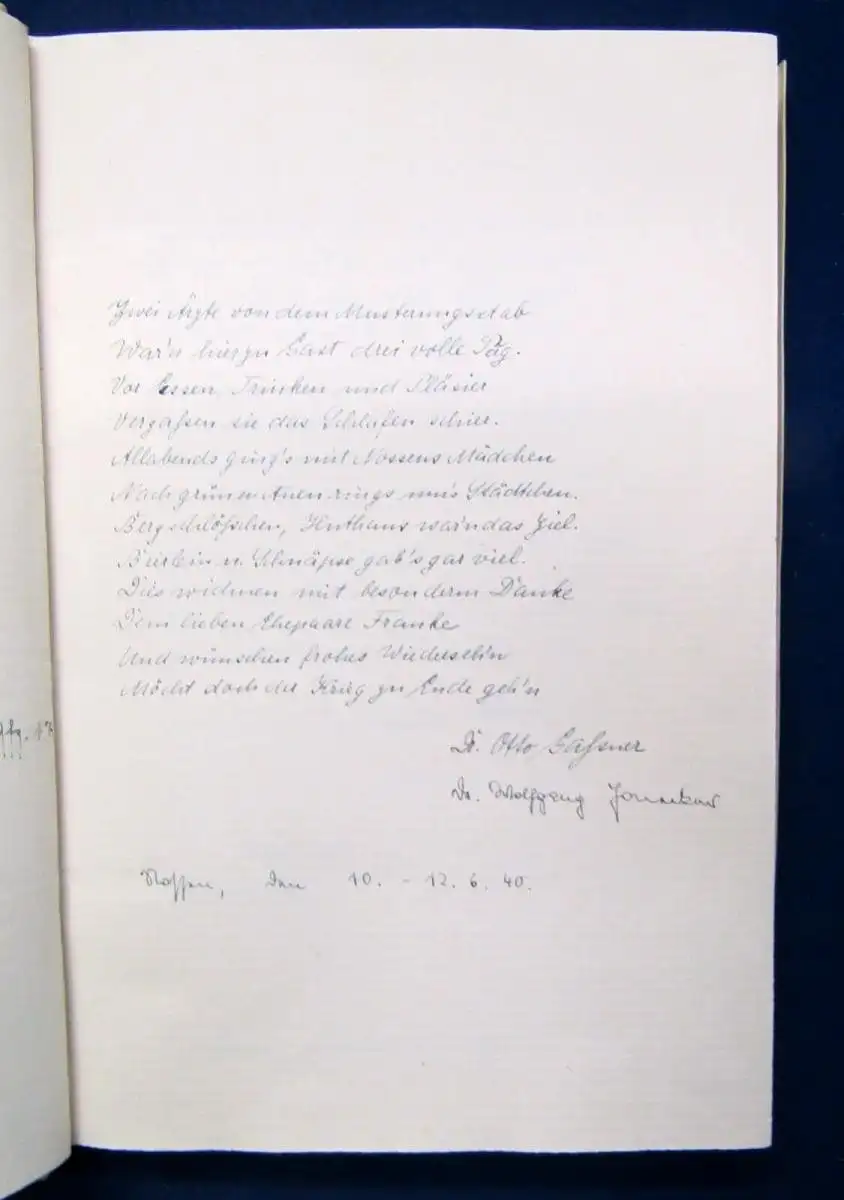 Zwei Ärzte von dem Musterungsstab
War'n hier zu Gast drei volle Tag.
Vor Essen, Trinken und Pläsier
Vergaßen sie das Schlafen schier.
Allabends ging's mit Nossens Mädchen
Nach grünen Auen rings um's Städtchen.
Bergschlößchen, Huthaus war'n das Ziel.
Bierlein u. Schnäpse gab's gar viel.
Dies widmen mit besonderm Danke
Dem lieben Ehepaare Franke
Und wünschen frohes Wiederseh'n
Möcht doch der Krieg zu Ende geh'n
Dr. Otto Gaßner
Dr. Wolfgang
Nossen, den 10. - 12. 6. 40.